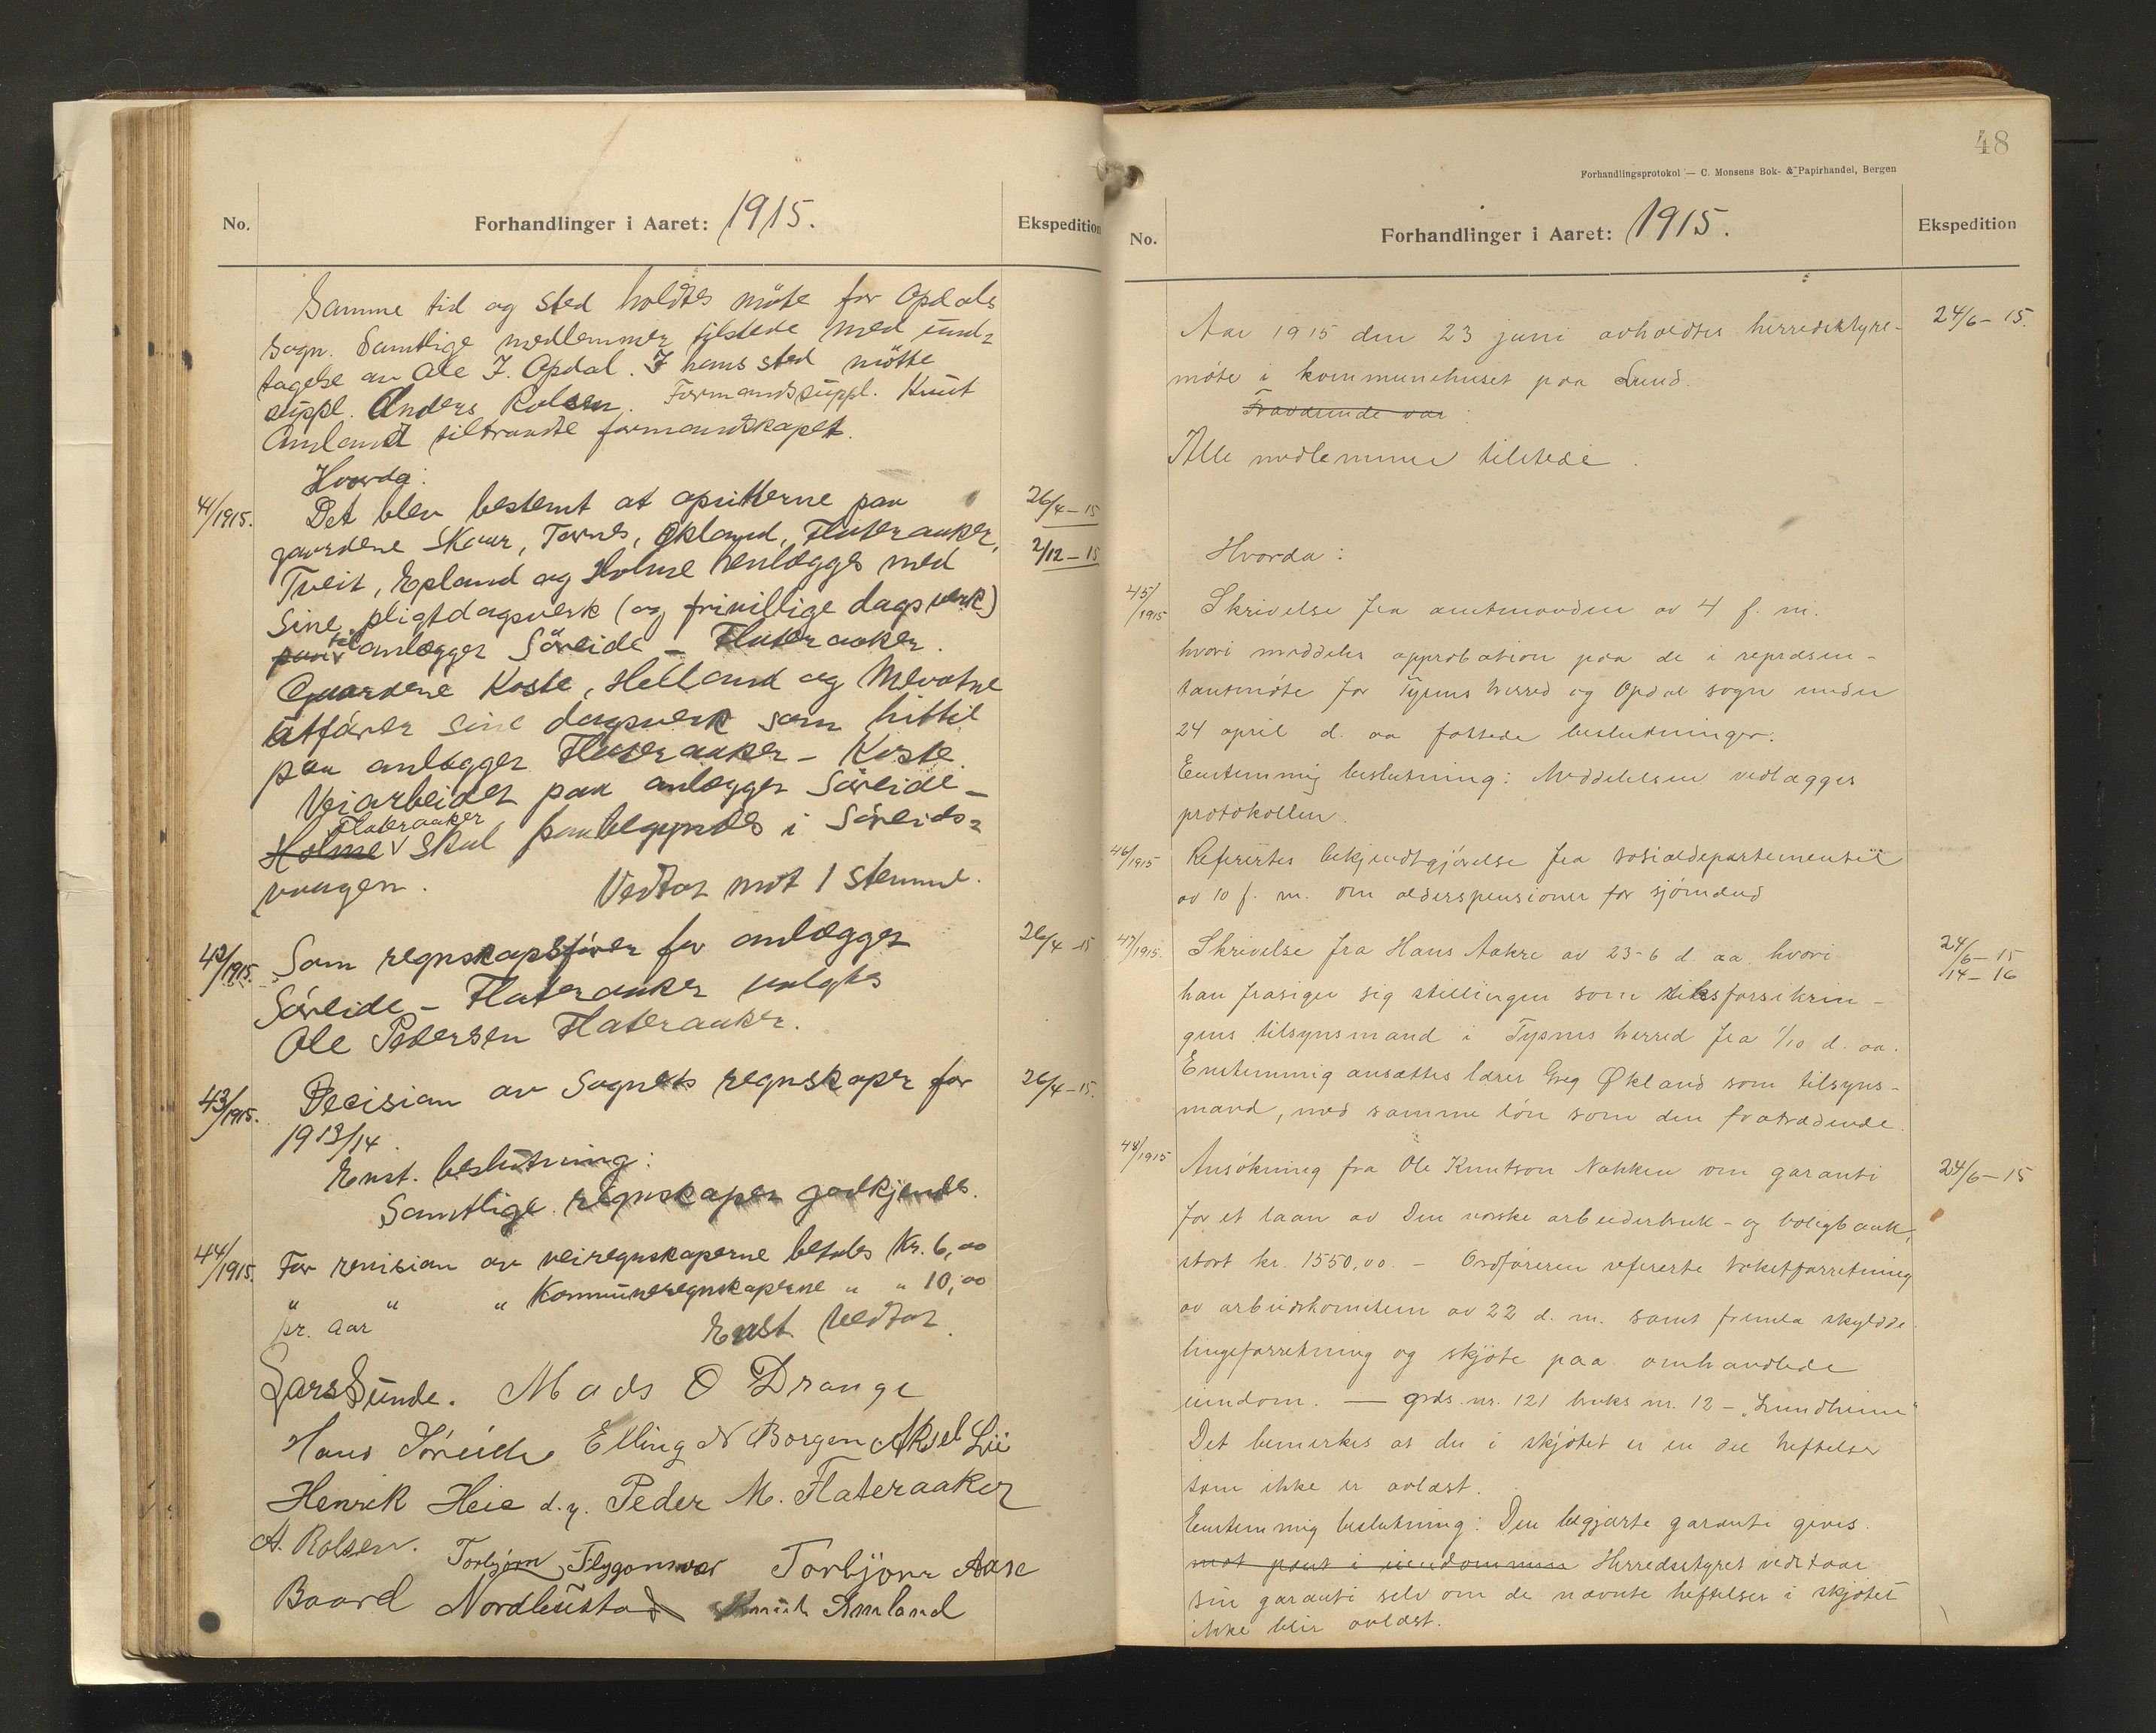 No. Forhandlinger i Aaret: 1915. Ekspedition
Samme tid og sted holdtes möte for Opdals
sogn. Samtlige medlemmer tilstede med und-
tagelse av Ole J. Opdal. I hans sted mötte
suppl. Anders Rolsen. Formandssuppl. Knut
Amland tiltraadte formandskapet.
Hvorda:
41/1915. Det blev bestemt at opsitterne paa 26/4-15
gaardene Skaar, Tornes, Økland, Flateraaker, 2/12-15
Tveit, Epland og Holme henlægges med
sine pligtdagsverk (og frivillige dagsverk)
paa til anlægget Söreide - Flateraaker.
Gaardene Koste, Helland og Mevatne
utförer sine dagsverk som hittil
paa anlægget Flateraaker - Koste.
Veiarbeidet paa anlægget Söreide -
Holme Flateraaker skal paabegyndes i Söreids-
vaagen.
Vedtat mot 1 stemme.
42/1915. Som regnskapsförer for anlægget 26/4-15
Söreide - Flateraaker valgtes
Ole Pedersen Flateraaker.
43/1915. Decision av Sognets regnskaper for 26/4-15.
1913/14.
Enst. beslutning:
Samtlige regnskaper godkjendes.
44/1915. For revision av veiregnskaperne betales Kr. 6,00
" " " Kommuneregnskaperne " " 10,00
pr. aar
Enst. vedtat.
Lars Sunde. Mads O Drange
Hans Söreide Elling N Borgen Aksel Lie
Henrik Heie d.y. Peder M. Flateraaker
A. Rolsen. Torbjørn Flygansvær Torbjörn Aase
Baard Nordhustad Knut Amland
48
Forhandlingsprotokol — C. Monsens Bok- & Papirhandel, Bergen
No. Forhandlinger i Aaret: 1915. Ekspedition
Aar 1915 den 23 juni avholdtes herredsstyre- 24/6-15.
möte i kommunehuset paa Lund.
Fraværende var:
Alle medlemmer tilstede.
Hvorda:
45/1915 Skrivelse fra amtmanden av 4 f. m.
hvori meddeles approbation paa de i repræsen-
tantmöte for Tysnes herred og Opdal sogn under
24 april d. aa fattede beslutninger.
Enstemmig beslutning: Meddelelsen vedlægges
protokollen.
46/1915 Refereres bekjendtgjörelse fra sosialdepartementet
av 10 f. m. om alderspensioner for sjömænd
47/1915. Skrivelse fra Hans Aakre av 23-6 d. aa. hvori 24/6-15
han frasiger sig stillingen som riksforsikrin- 14-16
gens tilsynsmand i Tysnes herred fra 1/10 d. aa.
Enstemmig ansættes lærer Greg Økland som tilsyns-
mand, med samme lön som den fratrædende.
48/1915 Ansökning fra Ole Knutson Nakken om garanti 24/6-15
for et laan av Den norske arbeiderbruk- og boligbank,
stort kr. 1550,00. - Ordföreren refererte takstforretning
av arbeidskomiteen av 22 d. m. samt fremla skylddе-
lingsforretning og skjöte paa omhandlede
eiendom. — grds. nr. 121 bruks nr. 12 - "Lundheim"
Det bemerkes at der i skjötet er en del heftelser
som ikke er avlæst.
Enstemmig beslutning: Den begjærte garanti gives.
mot pant i eiendommen Herredsstyret vedtaar
sin garanti selv om de nævnte heftelser i skjötet
ikke blir avlæst.